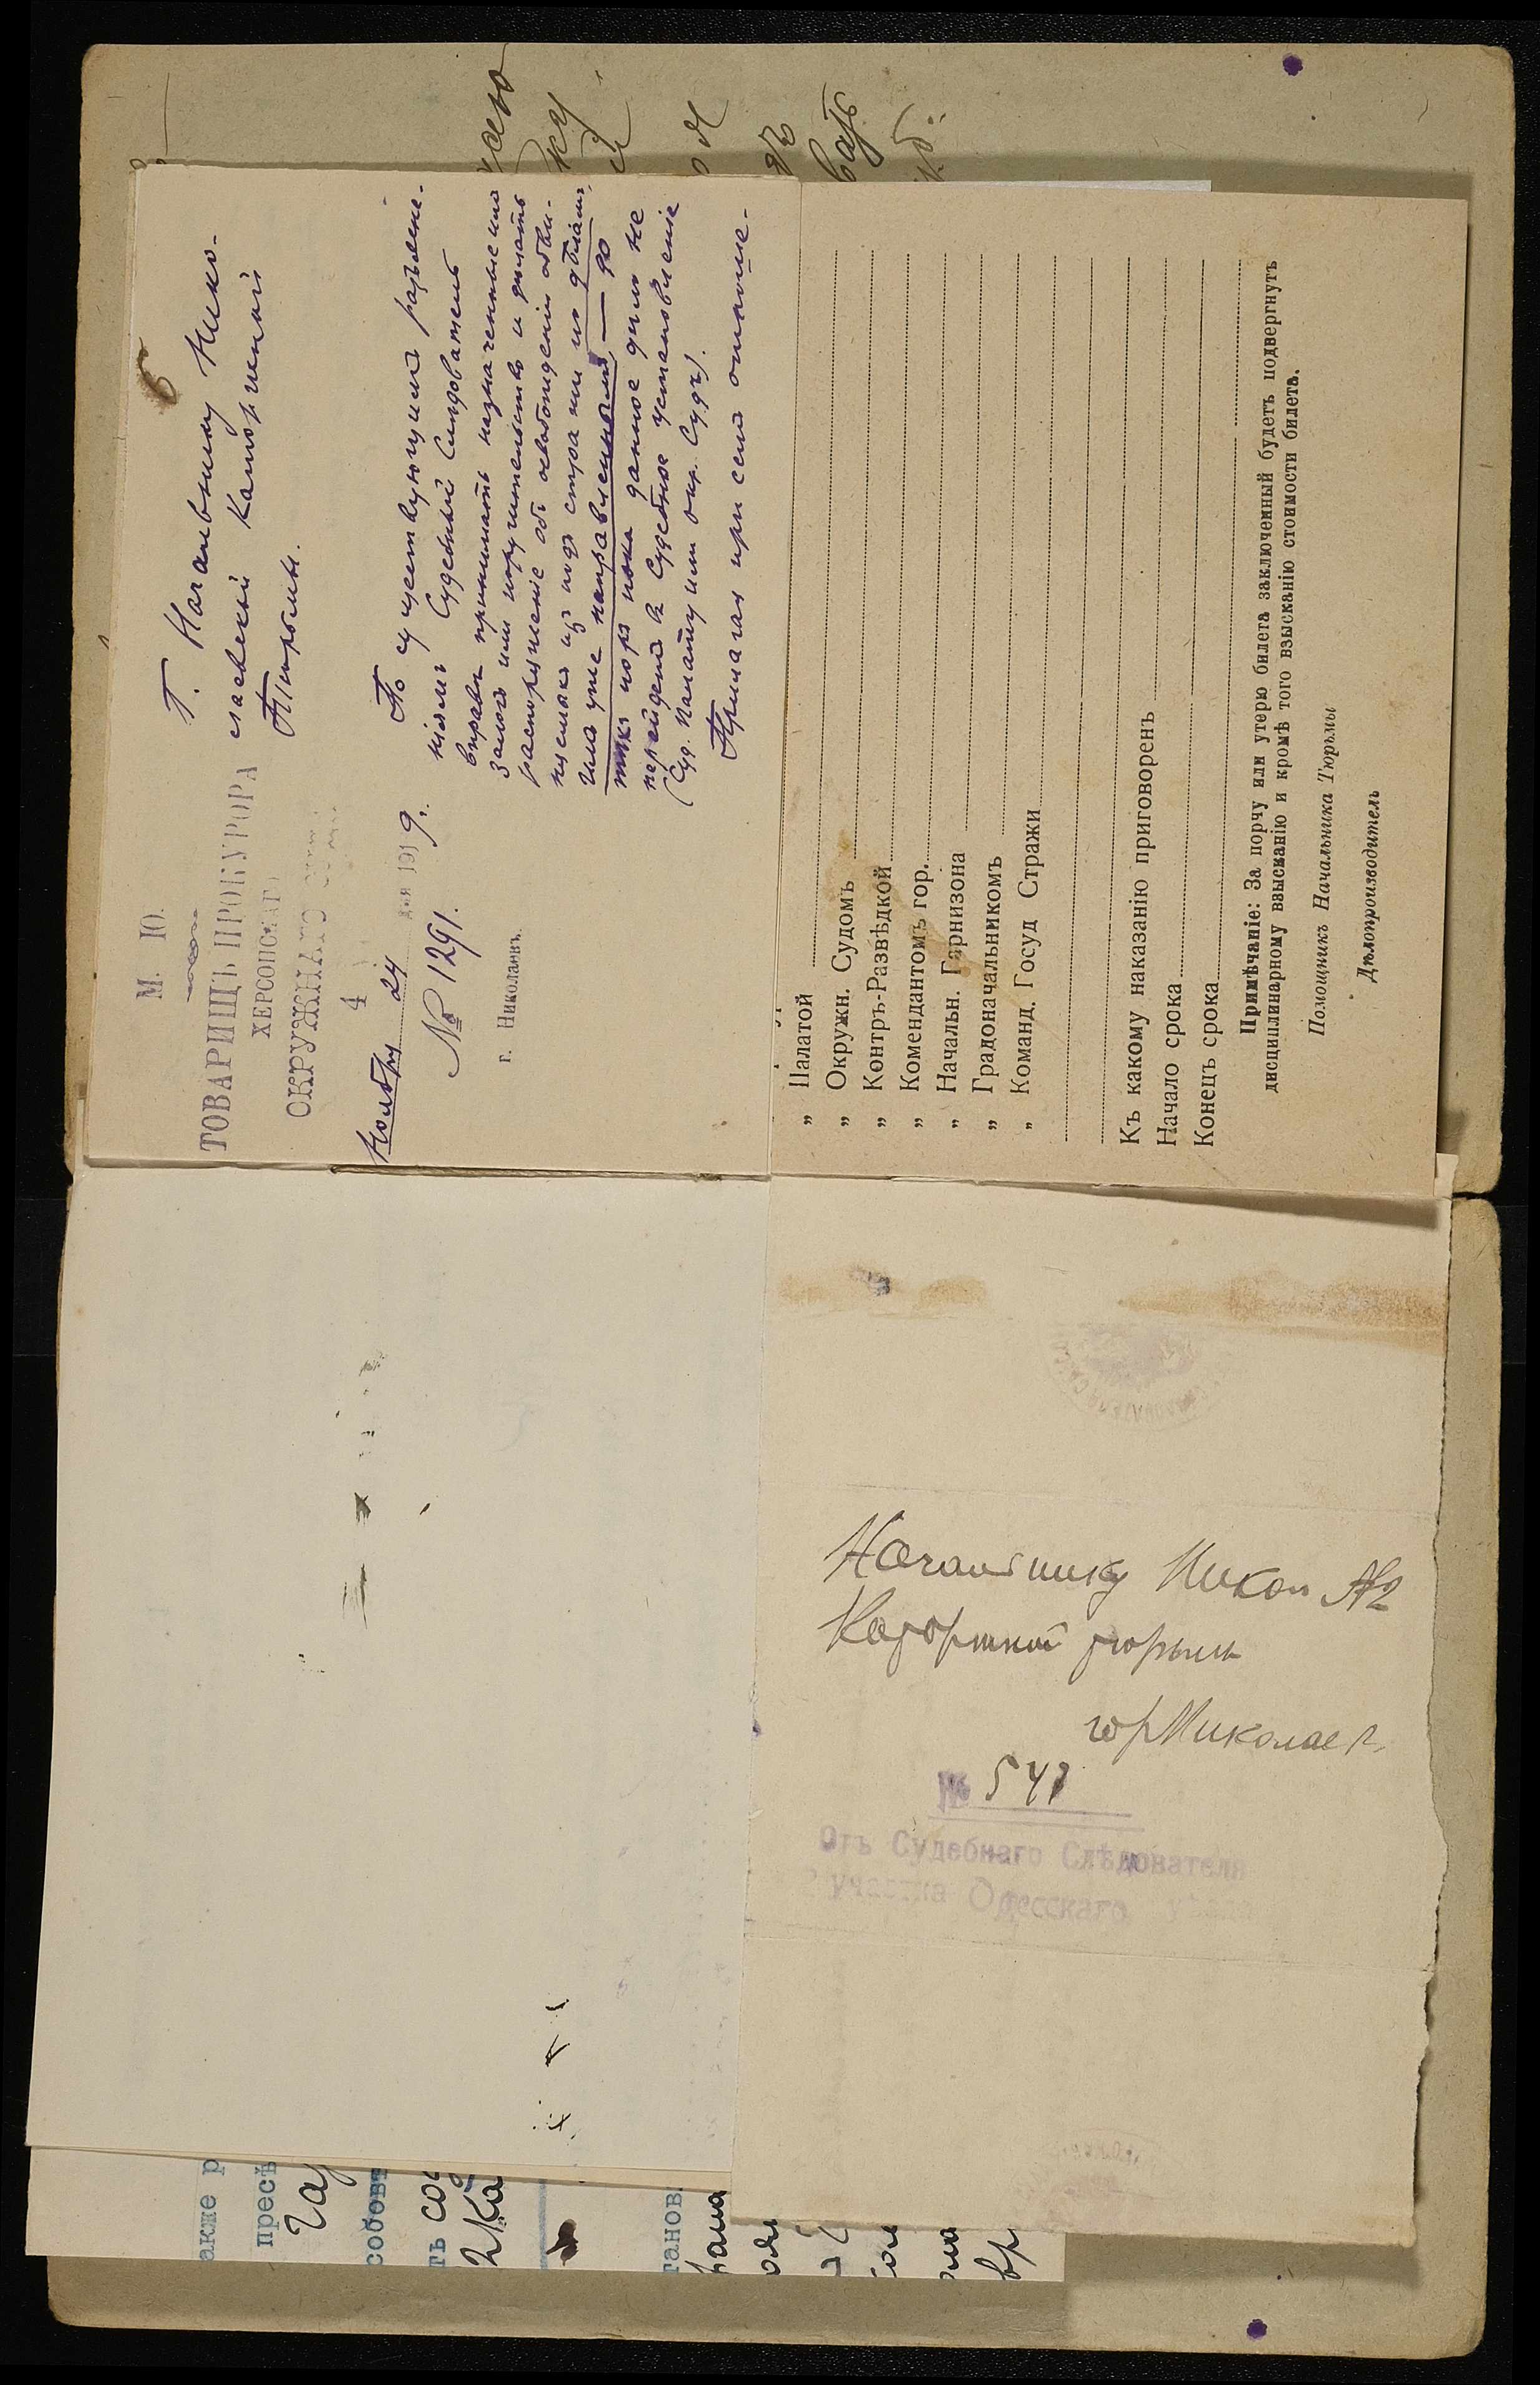 М. Ю.
ТОВАРИЩЪ ПРОКУРОРА
ХЕРСОНСКАГО
ОКРУЖНАГО СУДА
4
Ноября 24 дня 1919.
№ 1291.
г. Николаевъ.
Г. Начальнику Нико-
лаевской Каторжной
Тюрьмы.
По существующимъ разъясне-
ніямъ Судебный Слѣдователь
вправѣ принимать назначенные имъ
залогъ или поручительство и дѣлать
распоряженіе объ освобожденіи обви-
няемыхъ изъ подъ стражи по дѣламъ,
имъ уже направленнымъ — до
тѣхъ поръ пока данное дѣло не
перейдетъ въ Судебное установленіе
(Суд. Палату или окр. Судъ).
Прилагая при семъ отноше-
„ Палатой
„ Окружн. Судомъ
„ Контръ-Развѣдкой
„ Комендантомъ гор.
„ Начальн. Гарнизона
„ Градоначальникомъ
„ Команд. Госуд Стражи
Къ какому наказанію приговоренъ
Начало срока
Конецъ срока
Примѣчаніе: За порчу или утерю билета заключенный будетъ подвергнутъ
дисциплинарному взысканію и кромѣ того взысканію стоимости билета.
Помощникъ Начальника Тюрьмы
Дѣлопроизводитель
Начальнику Никол
Каторжной тюрьмы
гор Николаевъ
№ 541
Отъ Судебнаго Слѣдователя
участка Одесскаго уѣзда
акже р
пресѣ
собовъ
ть
танов
вр